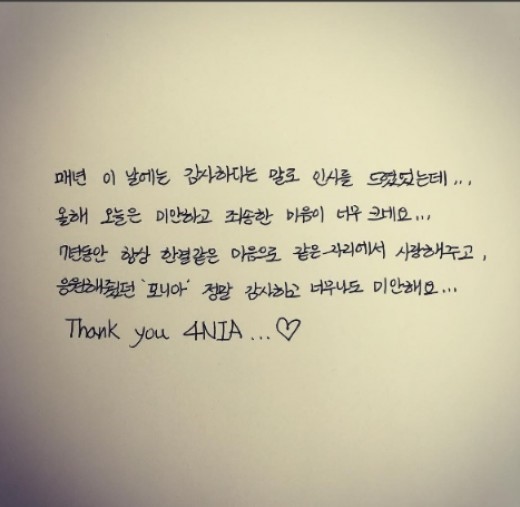 매년 이 날에는 감사하다는 말로 인사를 드렸었는데...
올해 오늘은 미안하고 죄송한 마음이 너무 크네요...
7년동안 항상 한결같은 마음으로 같은자리에서 사랑해주고,
응원해줬던 '포니아' 정말 감사하고 너무나도 미안해요...
Thank you 4NIA...♡